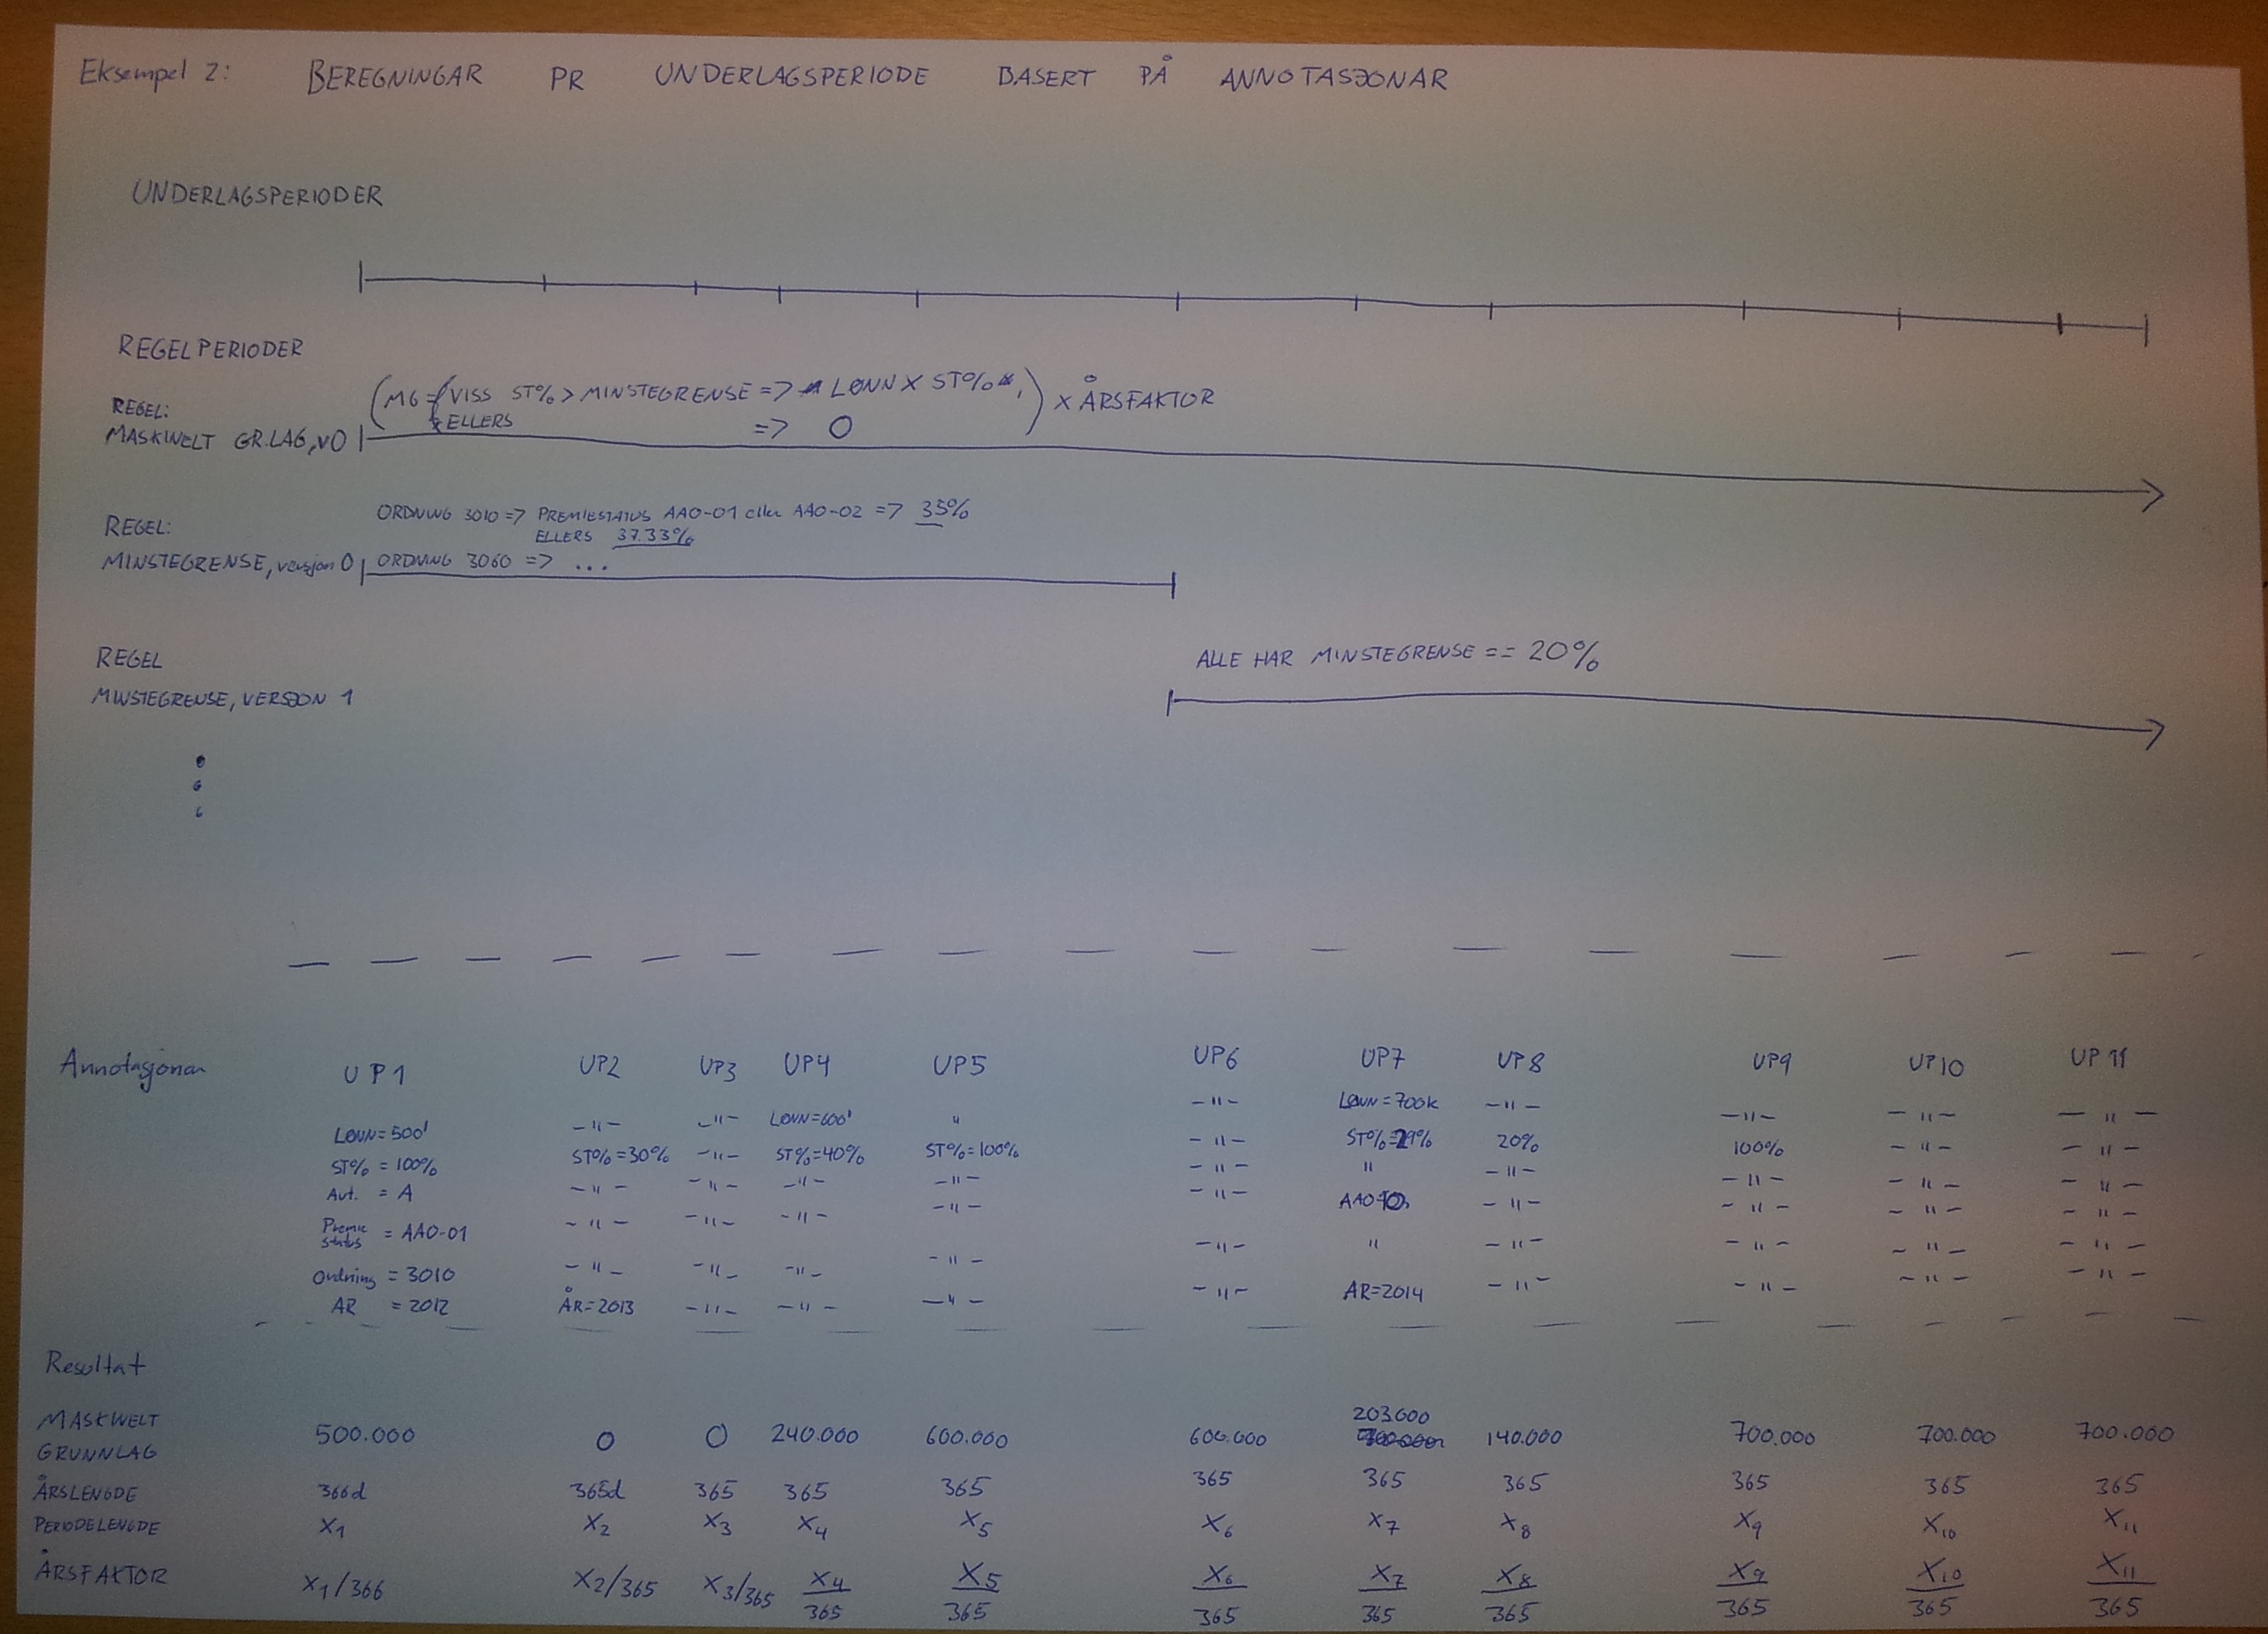 Eksempel 2: BEREGNINGAR PR UNDERLAGSPERIODE BASERT PÅ ANNOTASJONAR
UNDERLAGSPERIODER
REGELPERIODER
REGEL:
MASKINELT GR.LAG, v0
(MG = { VISS ST% > MINSTEGRENSE => LØNN X ST%, ) X ÅRSFAKTOR
ELLERS => 0
REGEL:
MINSTEGRENSE, versjon 0
ORDNING 3010 => PREMIESTATUS AAO-01 eller AAO-02 => 35%
ELLERS 37.33%
ORDNING 3060 => ...
REGEL
MINSTEGRENSE, VERSJON 1
ALLE HAR MINSTEGRENSE == 20%
Annotasjonar UP1 UP2 UP3 UP4 UP5 UP6 UP7 UP8 UP9 UP10 UP11
LØNN=500' -"- -"- LØNN=600' " -"- LØNN=700k -"- -"- -"- -"-
ST% = 100% ST%=30% -"- ST%=40% ST%=100% -"- ST%=29% 20% 100% -"- -"-
Avt. = A -"- -"- -"- -"- -"- " -"- -"- -"- -"-
Premie status = AAO-01 -"- -"- -"- -"- -"- AAO-10 -"- -"- -"- -"-
Ordning = 3010 -"- -"- -"- -"- -"- " -"- -"- -"- -"-
ÅR = 2012 ÅR=2013 -"- -"- -"- -"- ÅR=2014 -"- -"- -"- -"-
Resultat
MASKINELT
GRUNNLAG 500.000 0 0 240.000 600.000 600.000 203.000 140.000 700.000 700.000 700.000
ÅRSLENGDE 366d 365d 365 365 365 365 365 365 365 365 365
PERIODELENGDE X1 X2 X3 X4 X5 X6 X7 X8 X9 X10 X11
ÅRSFAKTOR X1/366 X2/365 X3/365 X4/365 X5/365 X6/365 X7/365 X8/365 X9/365 X10/365 X11/365